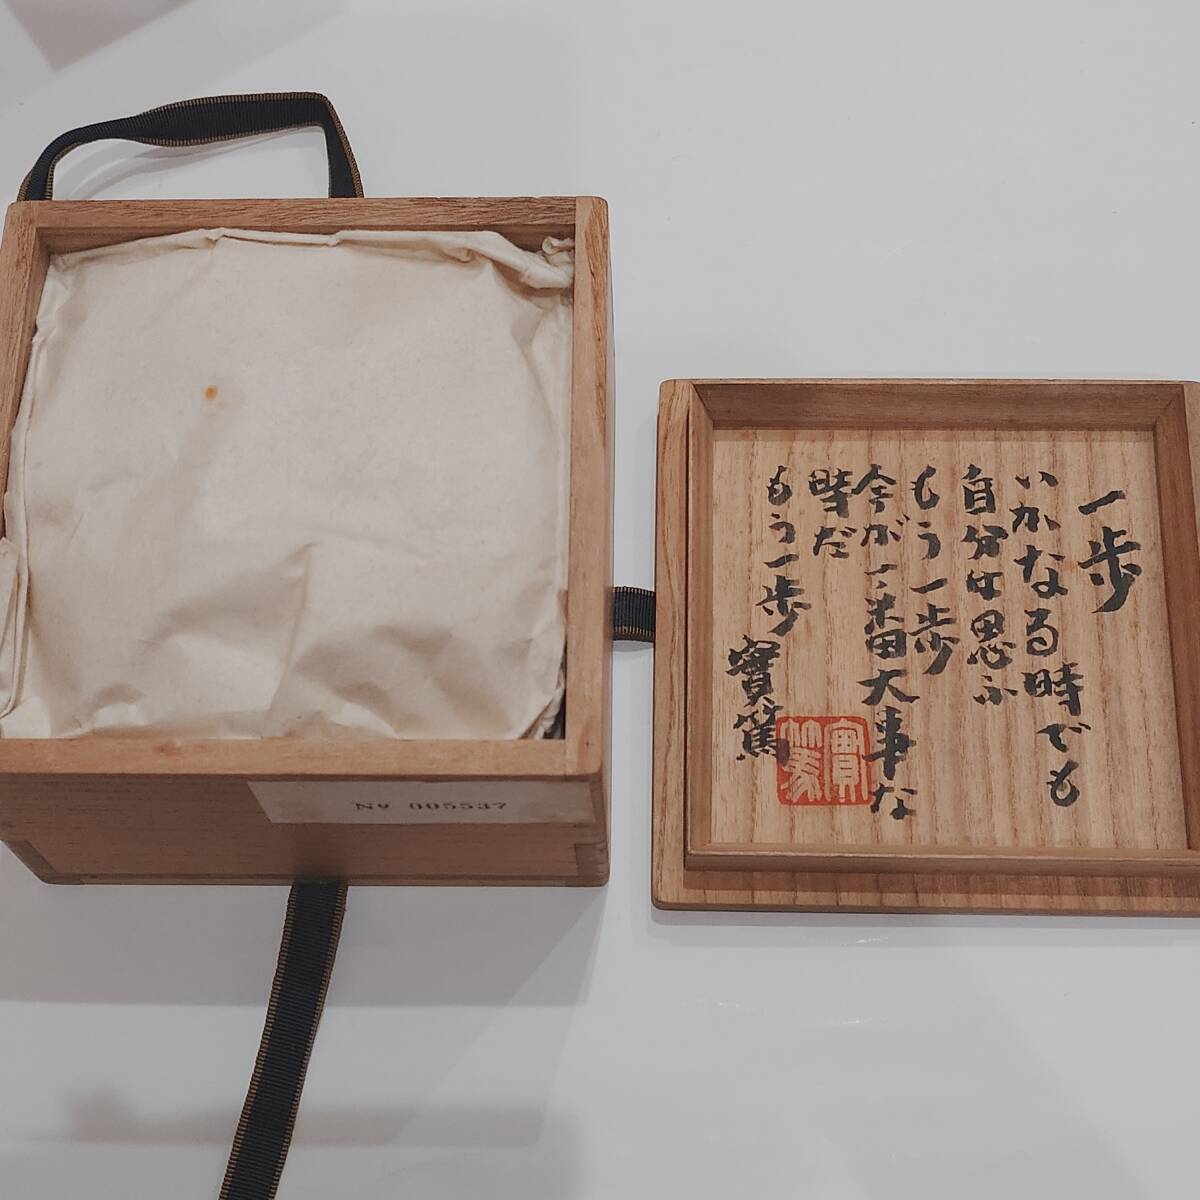 一歩
いかなる時でも
自分は思ふ
もう一歩
今が一番大事な
時だ
もう一歩
實篤
實篤
No 005537